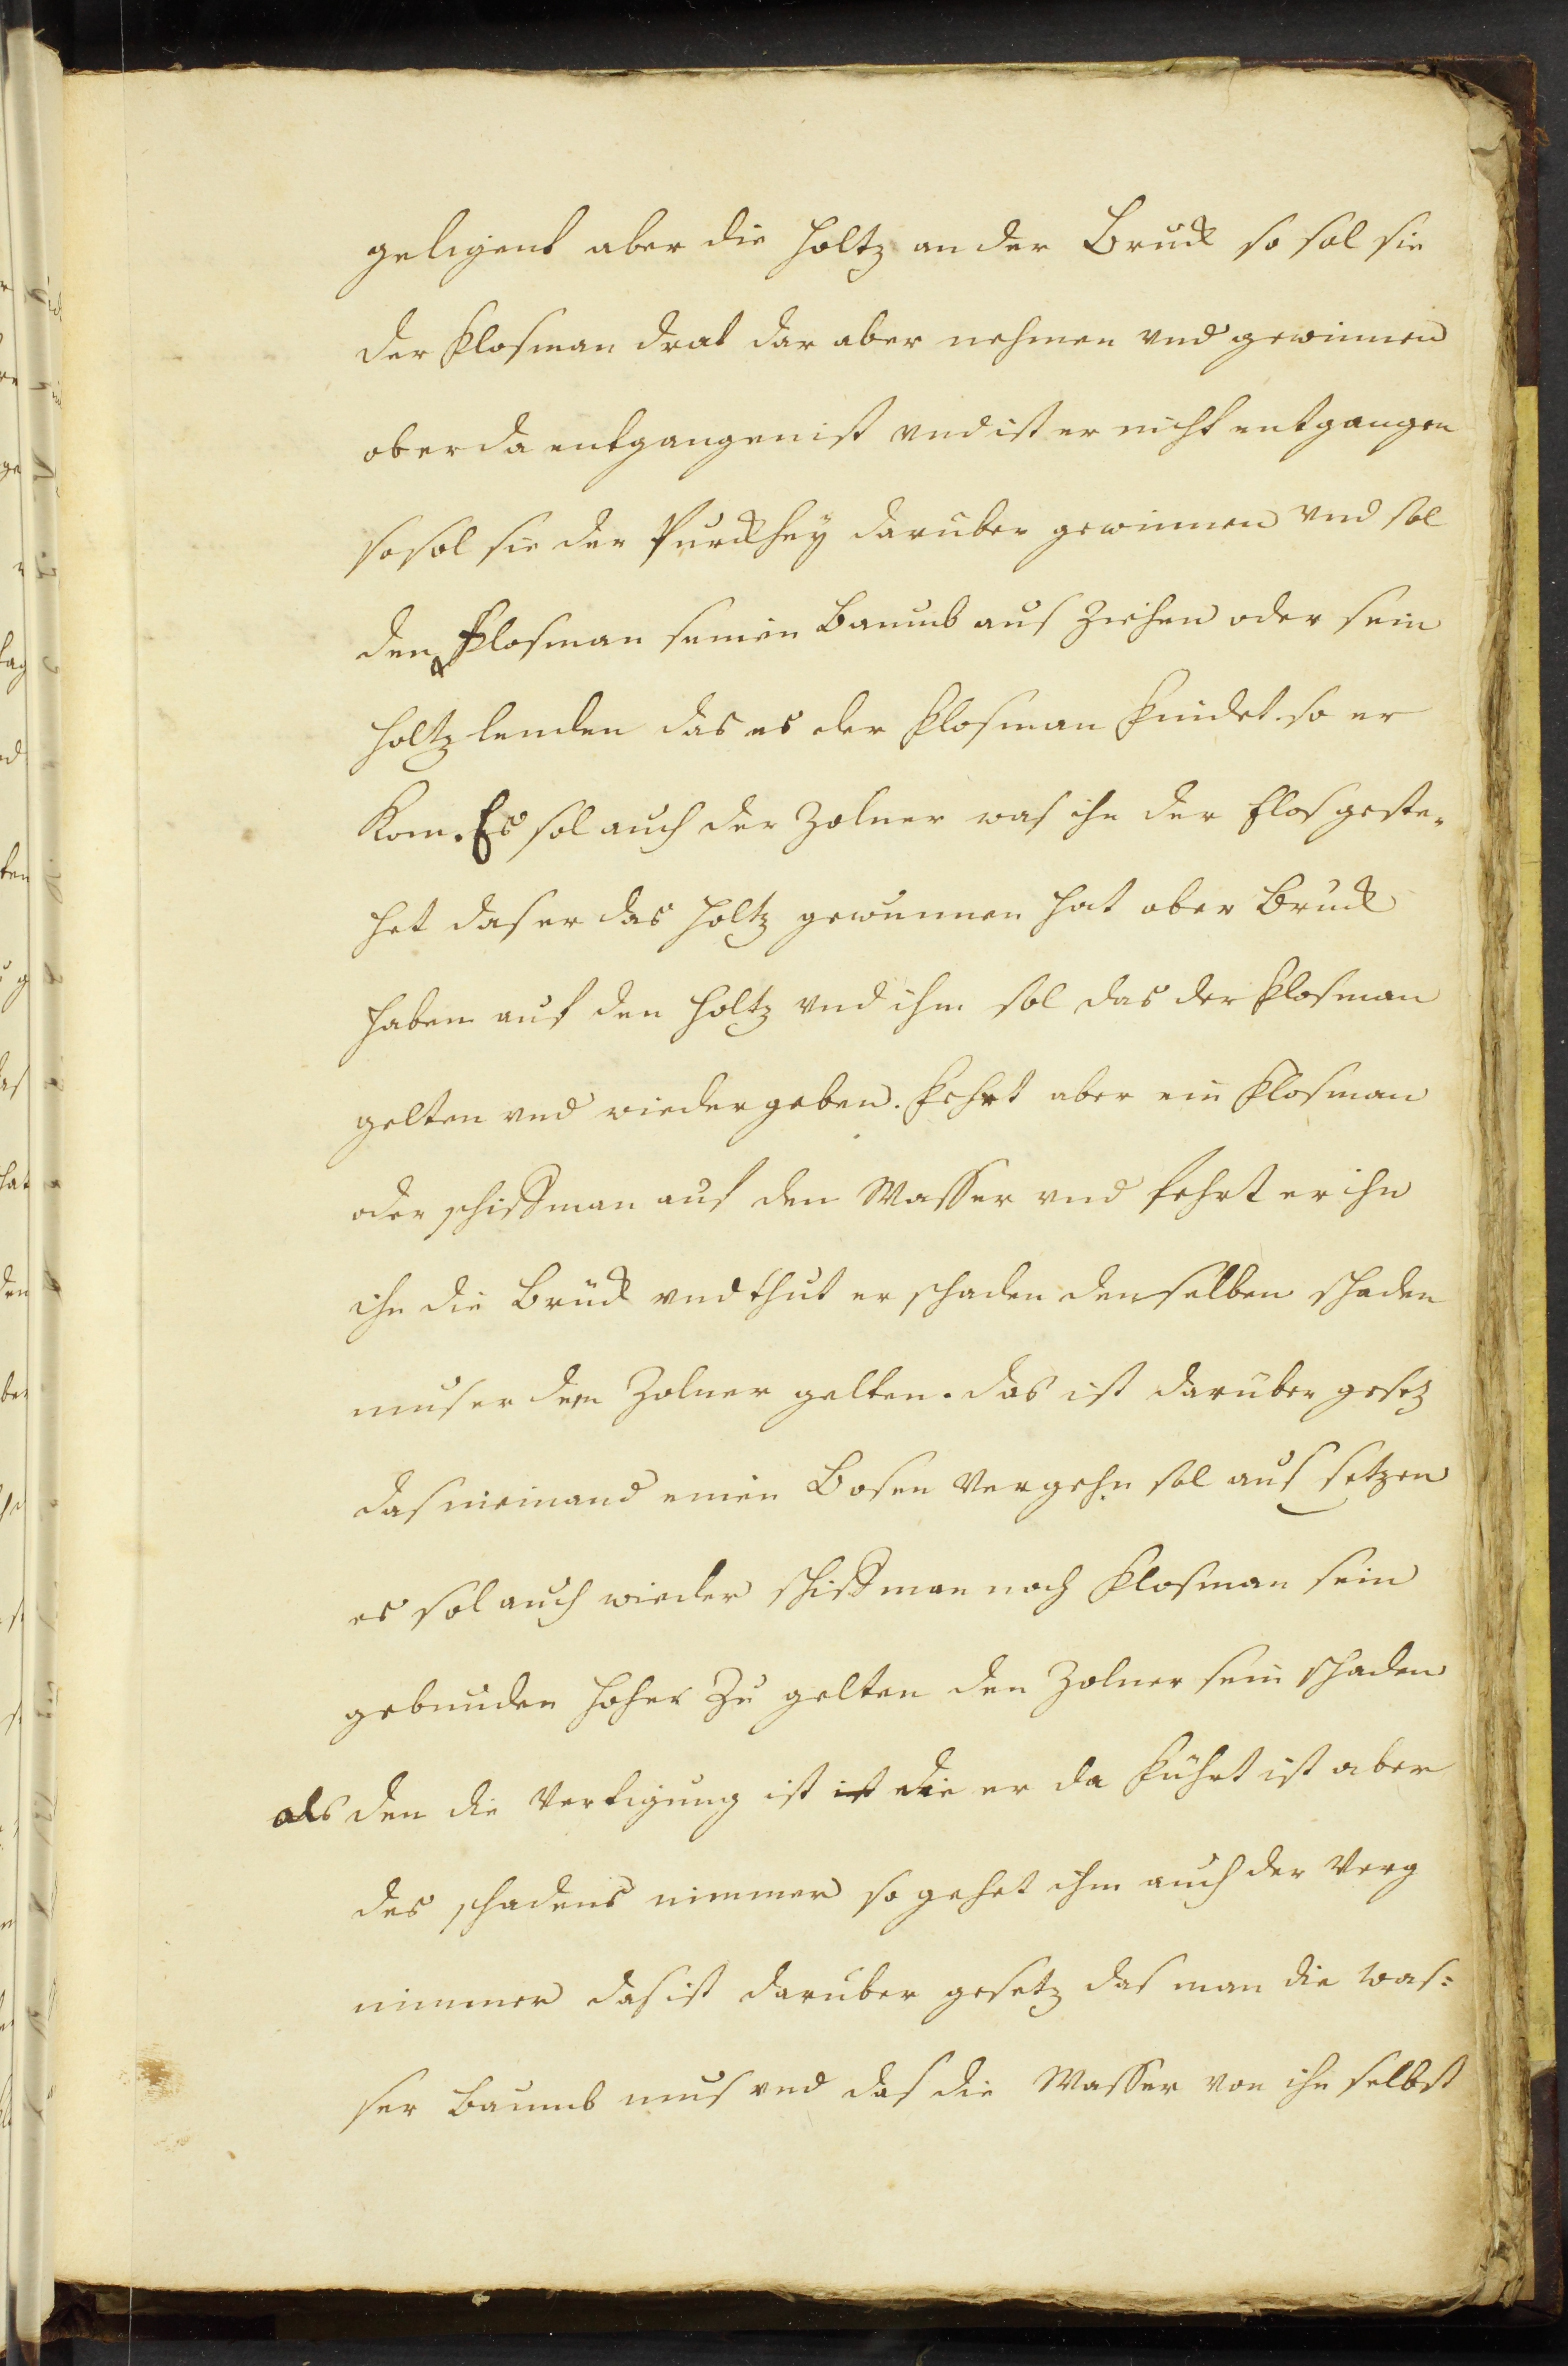 geligent aber die holtz an der Bruck so sol sie
der flosman drat dar aber nehmen vnd gewinnen
ob er da entgangen ist vnd ist er nicht entgangen
so sol sie der Purckhey daruber gewinnen vnd sol
den flosman seinen Baumb aus Ziehen oder sein
holtz lenden das es der flosman findet so er
Kom. Es sol auch der Zolner was ihn der flos geste-
het das er das holtz gewunnen hat ober Bruck
haben auf den holtz vnd ihm sol das der flosman
gelten vnd wiedergeben. fehrt aber ein flosman
oder schiffman auf den Wasser vnd fehrt er ihn
ihn die Brück vnd thut er schaden denselben schaden
mus er dem Zolner gelten. das ist daruber gesetz
das niemand einen Bosen Vergehn sol aus setzen
es sol auch wieder schiffman noch flosman sein
gebunden hoher Zu gelten den Zolner sein schaden
als den die Vertigung ist ist die er da führt ist aber
des schadens nimmer so gehet ihm auch der Verg
nimmer das ist daruber gesetz das man die was=
ser Baumb mus vnd das die Wasser von ihn selbst